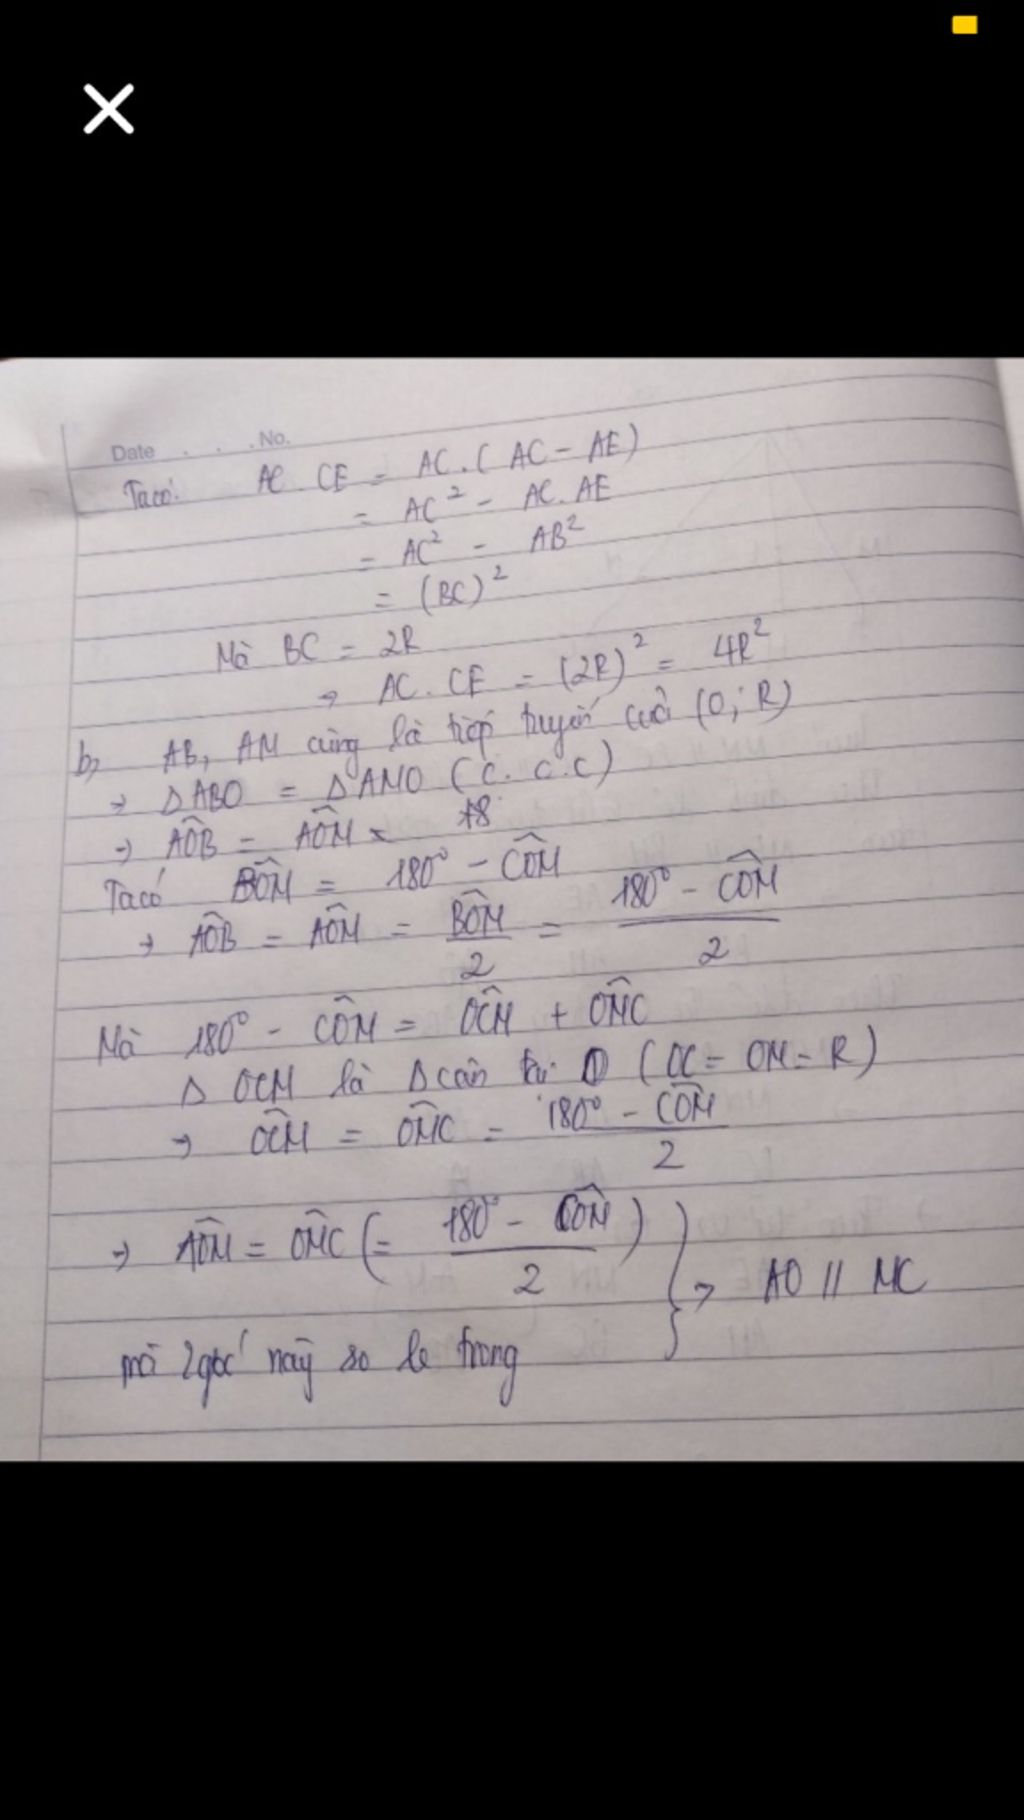 Date . . . No.
Ta có: AC. CE = AC.( AC - AE)
= AC² - AC. AE
= AC² - AB²
= (BC)²
Mà BC = 2R
→ AC. CE = (2R)² = 4R²
b, AB, AM cùng là tiếp tuyến của (O; R)
→ ΔABO = ΔAMO (c. c.c)
→ AÔB = AÔM
Ta có BÔM = 180° - CÔM
→ AÔB = AÔM = BÔM/2 = (180° - CÔM)/2
Mà 180° - CÔM = OĈM + OM̂C
Δ OCM là Δ cân tại O (OC = OM = R)
→ OĈM = OM̂C = (180° - CÔM)/2
→ AÔM = OM̂C (= (180° - CÔM)/2)
→ AO // MC
mà 2 góc này so le trong